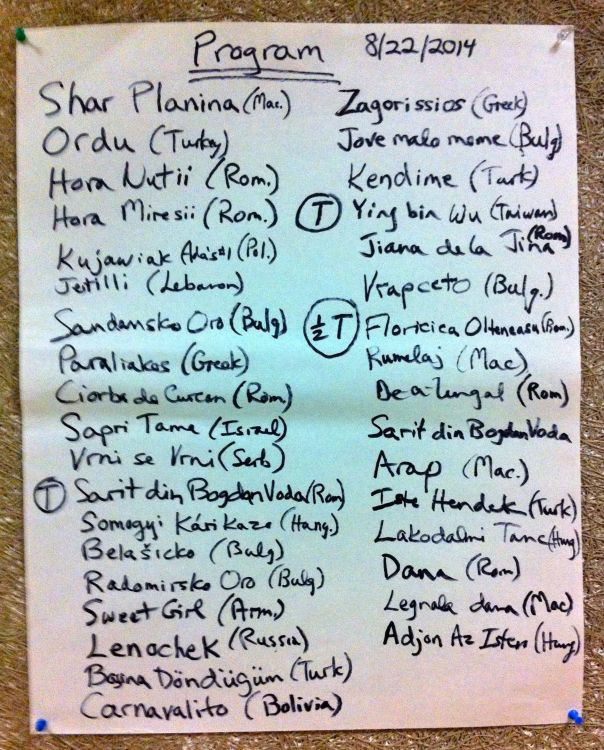 Program 8/22/2014
Shar Planina (Mac.)
Ordu (Turkey)
Hora Nutii (Rom.)
Hora Miresii (Rom.)
Kujawiak Ada's #1 (Pol.)
Jetilli (Lebanon)
Sandansko Oro (Bulg)
Paraliakos (Greek)
Ciorba de Curcan (Rom)
Sapri Tama (Israel)
Vrni se Vrni (Serb)
T Sarit din Bogdan Voda (Rom)
Somogyi Karikazo (Hung.)
Belasičko (Bulg)
Radomirsko Oro (Bulg)
Sweet Girl (Arm.)
Lenochek (Russia)
Döndügüm (Turk)
Carnavalito (Bolivia)
Zagorissios (Greek)
Jove malo mome (Bulg)
Kendime (Turk)
T Ying bin Wu (Taiwan)
Jiana de la Jina (Rom)
Vrapceto (Bulg.)
½ T Floricica Olteneasca (Rom.)
Rumelaj (Mac)
De-a lungul (Rom)
Sarit din Bogdan Voda
Arap (Mac.)
Iste Hendek (Turk)
Lakodalmi Tanc (Hung)
Dana (Rom)
Legnala dana (Mac)
Adjon Az Isten (Hung)